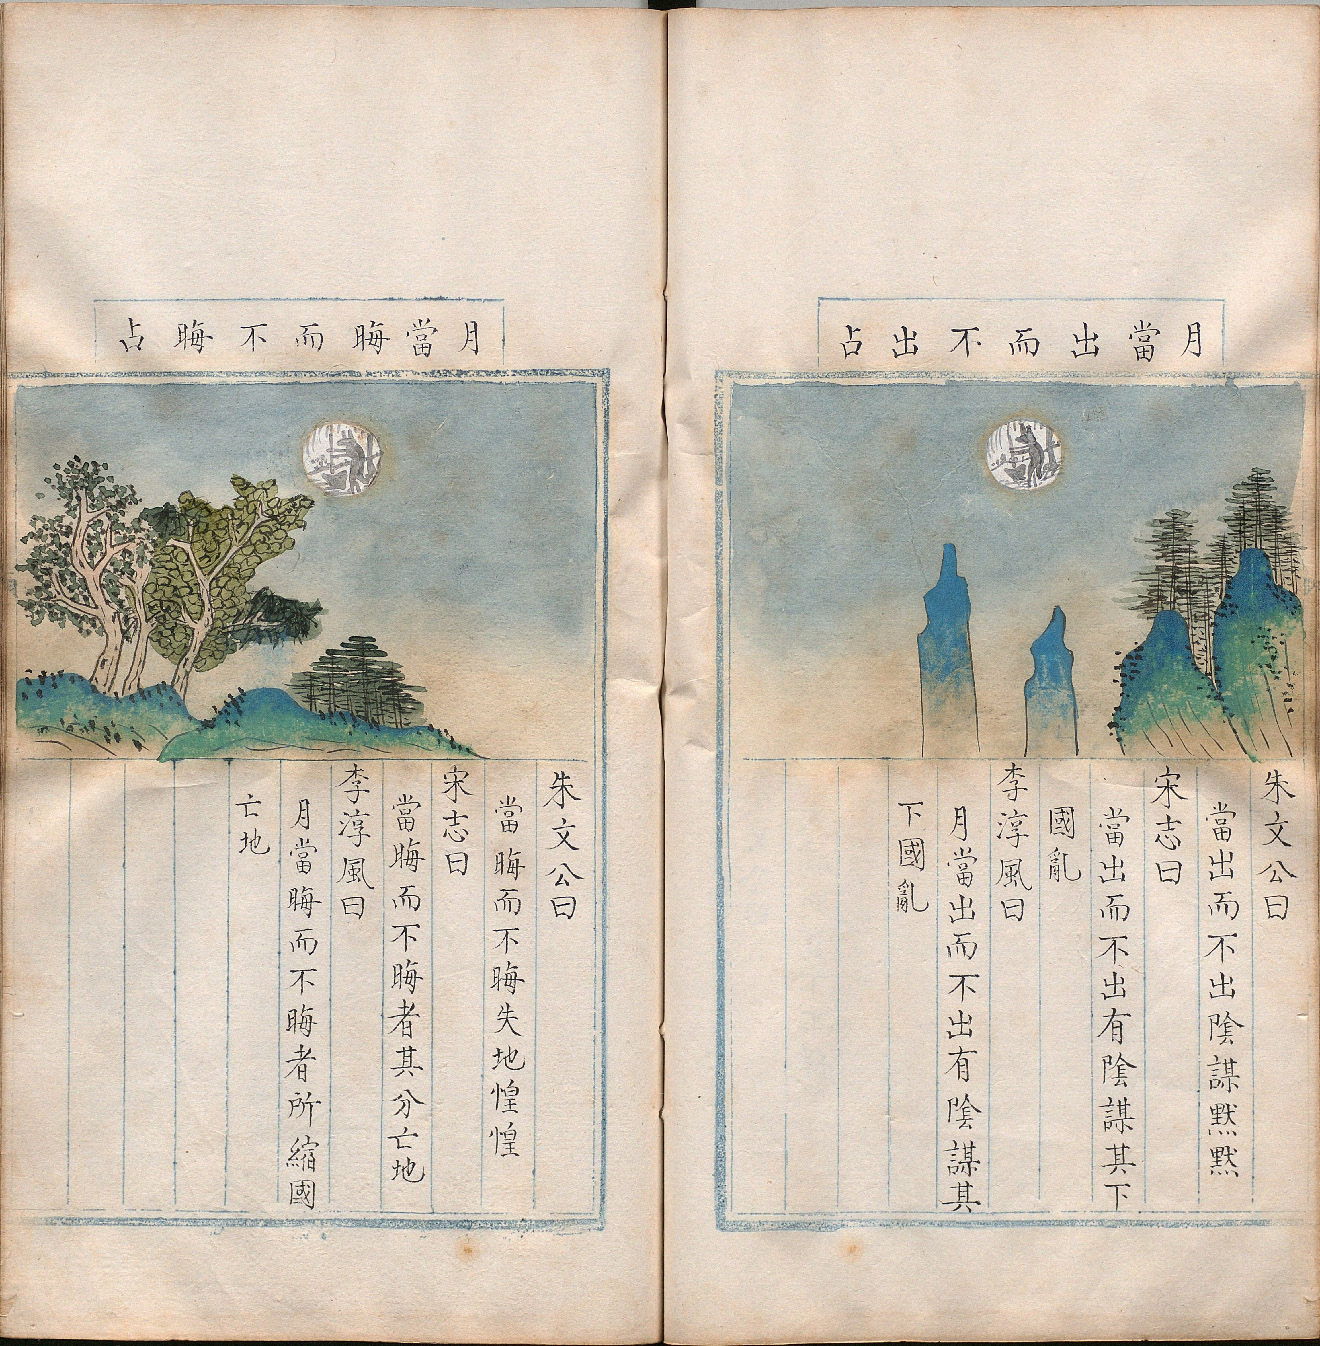 月當出而不出占
朱文公曰
當出而不出陰謀默默
宋志曰
當出而不出有陰謀其下
國亂
李淳風曰
月當出而不出有陰謀其
下國亂
月當晦而不晦占
朱文公曰
當晦而不晦失地惶惶
宋志曰
當晦而不晦者其分亡地
李淳風曰
月當晦而不晦者所縮國
亡地